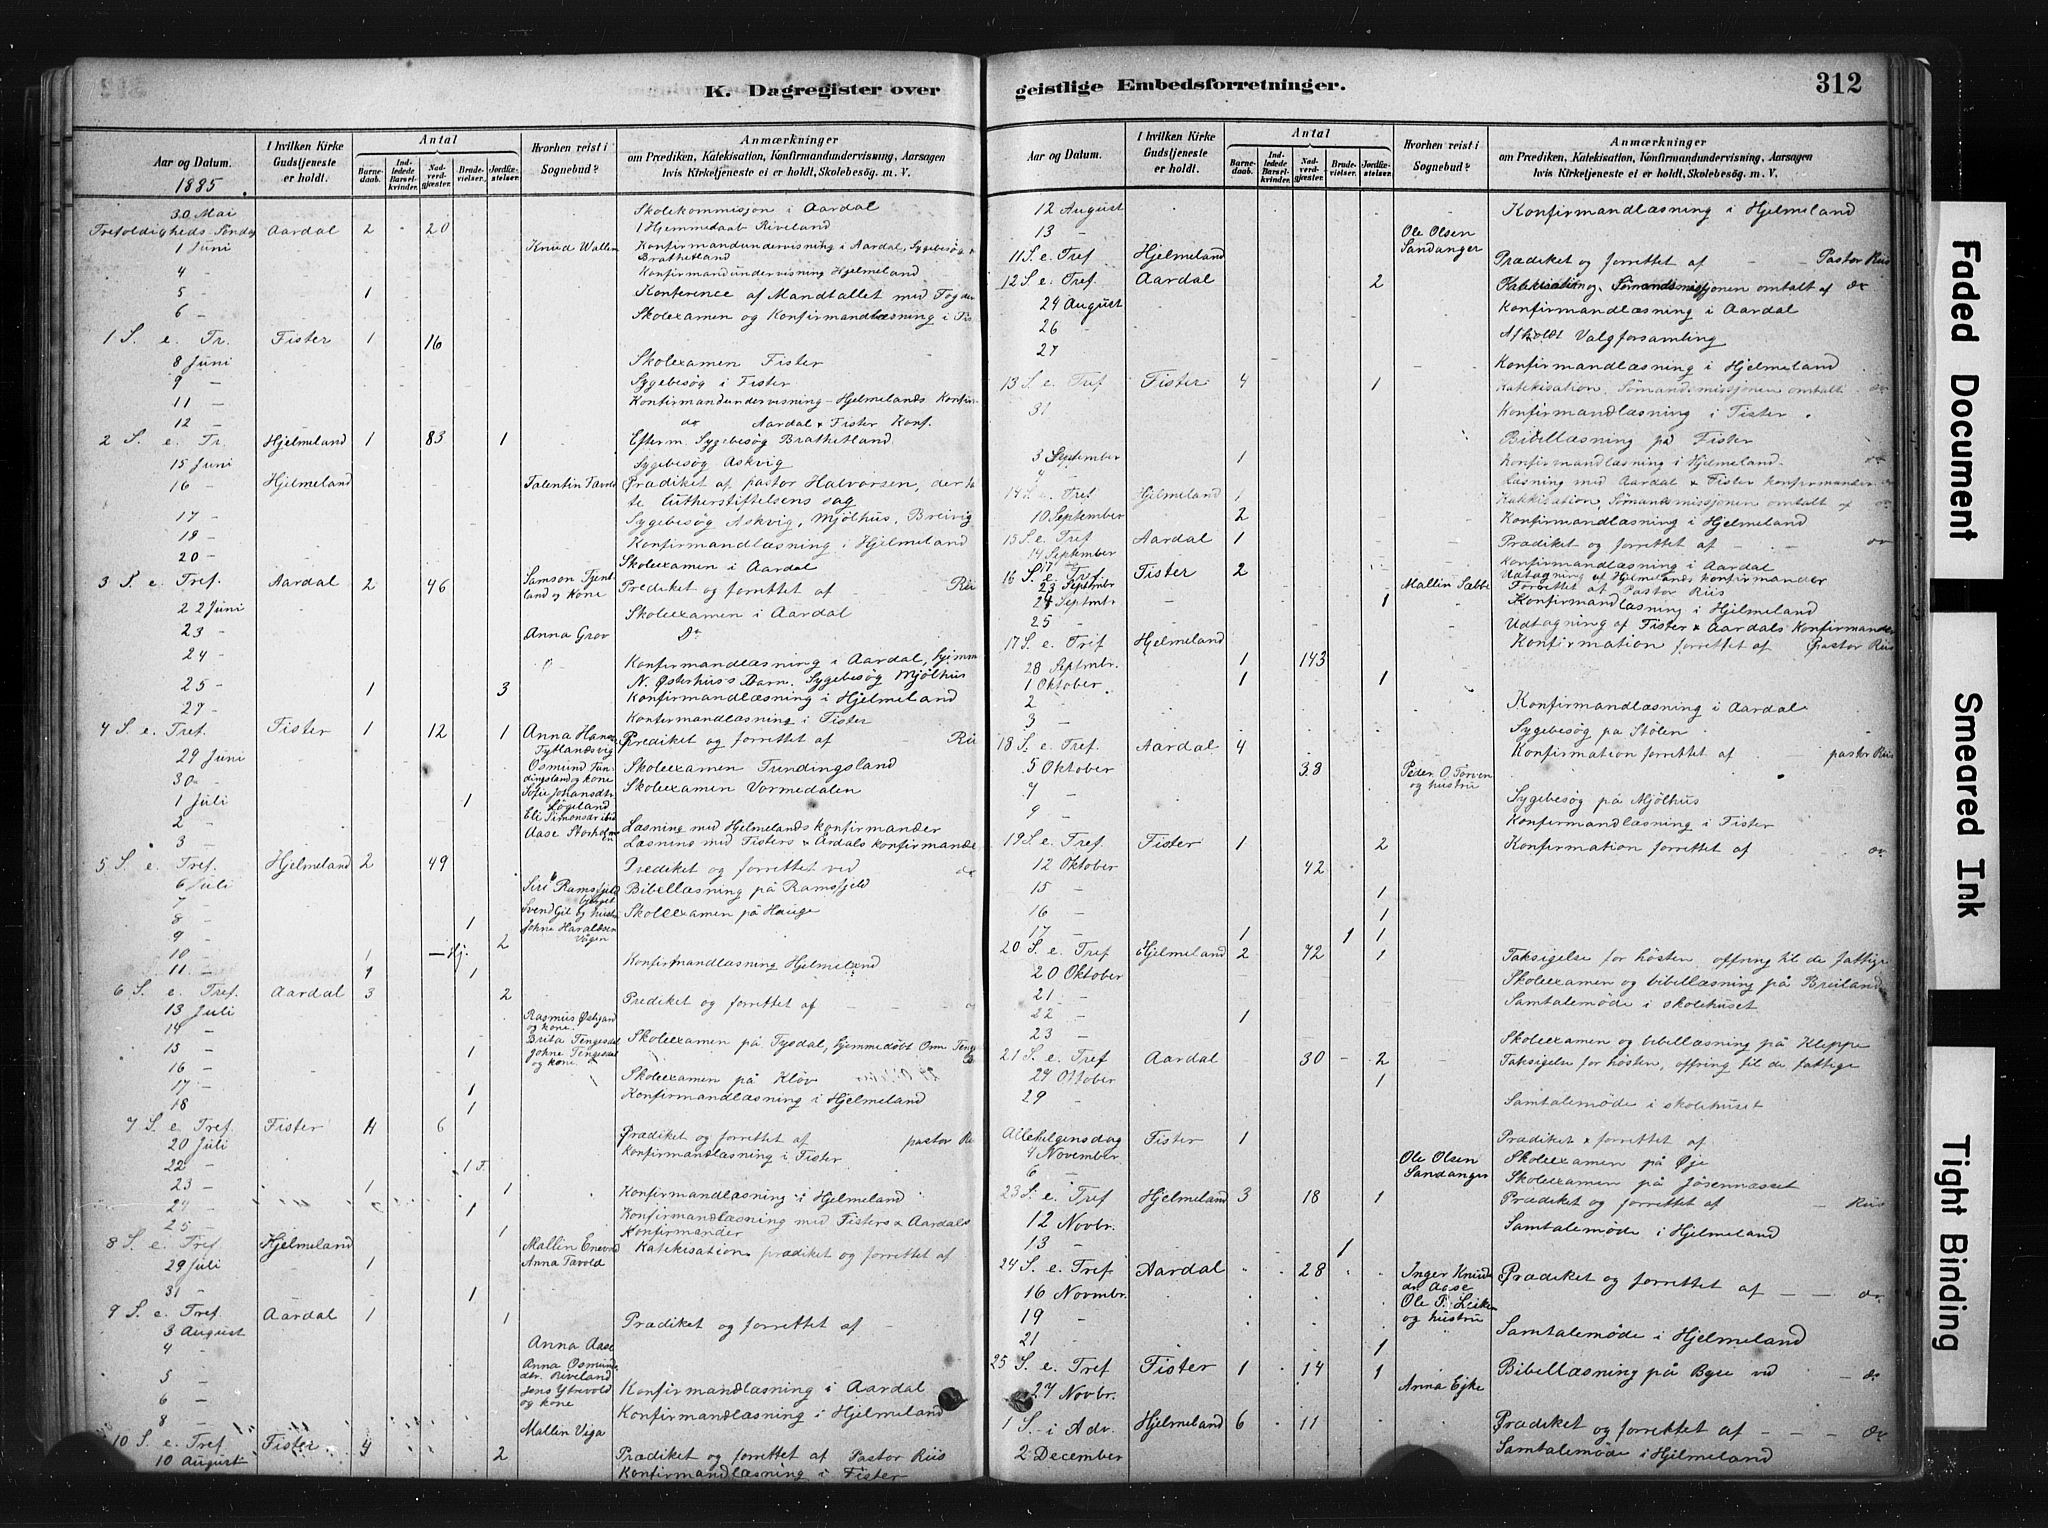 K. Dagregister over geistlige Embedsforretninger. 312
Aar og Datum. I hvilken Kirke Gudstjeneste er holdt. Antal Barnedaab. Indledede Barselkvinder. Nadverdgjæster. Brudevielser. Jordfæstelser. Hvorhen reist i Sognebud? Anmærkninger om Prædiken, Katekisation, Konfirmandundervisning, Aarsagen hvis Kirketjeneste ei er holdt, Skolebesøg. m. V.
1885
30 Mai Skolekommisjon i Aardal
Trefoldigheds Søndag Aardal 2 20 1 Hjemmedaab Riveland
1 Juni Knud Wallen Konfirmandundervisning i Aardal, Sygebesøg
Brathetland
4 - Konfirmandundervisning Hjelmeland
5 - 1 Konference af Mandtallet med Fogden
6 - Skolexamen og Konfirmandlæsning i Fis
1 S. e. Tr. Fister 1 16
8 Juni Skolexamen Fister
9 - Sygebesøg i Fister
11 - Konfirmandundervisning Hjelmelands Konfir
12 - do Aardal & Fister Konf.
2 S. e. Tr. Hjelmeland 1 83 1 Efterm. Sygebesøg Brathetland
15 Juni Sygebesøg Askvig
16 - Hjelmeland Prædiket af pastor Halvorsen, der
te lutherstiftelsens sag
17 - Sygebesøg Askvig, Mjølhus, Breivig
18 - Konfirmandlæsning i Hjelmeland
20 - Skoleexamen i Aardal
3 S. e. Tref. Aardal 2 46 Samson Tjent
land og Kone Prediket og forrettet af - Riis
22 Juni Skoleexamen i Aardal
23 - Anna Grov Do
24 - Konfirmandlæsning i Aardal, hjemm
N. Østerhus's Barn. Sygebesøg Mjølhus
25 - 1 3 Konfirmandlæsning i Hjelmeland
27 - Konfirmandlæsning i Fister
4 S. e. Tref. Fister 1 12 1 Anna Hans
Tytlandsvig Prediket og forrettet af - Rii
29 Juni Osmund Fun
dingsland og kone Skoleexamen Fundingsland
30 - Sofie Johansdtr
Løgeland Skoleexamen Vormedalen
1 Juli 1
2 - Eli Simonsdr ibid Læsning med Hjelmelands konfirmander
3 - Aase Storholm Læsning med Fisters & Ardals konfirmande
5 S. e. Tref. Hjelmeland 2 49 Prediket og forrettet ved do
6 Juli Siri Ramsfjeld Bibellæsning på Ramsfjeld
7 - Svend Gil og hustru Skoleexamen på Hauge
8 - 1 Johne Haraldsen
Vågen
9 - 2
10 - 1 - Hj. Konfirmandlæsning Hjelmeland
11 - 1 1
6 S. e. Tref. Aardal 3 2 Prediket og forrettet af
13 Juli Rasmus Østgard
og kone
14 - Brita Tengesdal Skoleexamen på Tysdal, hjemmedøbt Osm Tenge
15 - 1 Johne Tengesdal
og kone
16 - Skoleexamen på Kløv
17 - 1 Konfirmandlæsning i Hjelmeland
18 1
7 S. e. Tref. Fister 4 6 Prædiket og forrettet af pastor Ri
20 Juli Konfirmandlæsning i Fister
22 - 1 F.
23 - 1 1 Konfirmandlæsning i Hjelmeland
24 - 1 Konfirmandlæsning med Fisters & Aardals
25 - 1 Konfirmander
8 S. e. Tref. Hjelmeland Mallin Enevold Katekisation prædiket og forrettet af
29 Juli 1 Anna Tavold
31 - 1
9 S. e. Tref. Aardal 1 1 Prædiket og forrettet af -
3 August
4 - Anna Aase
5 - Anna Osmunds
dtr. Riveland
6 - Jens Ytrevold
og kone Konfirmandlæsning i Aardal
8 - Mallin Viga Konfirmandlæsning i Hjelmeland
10 S. e. Tref Fister 4 2 Prædiket og forrettet af Pastor Riis
10 August Konfirmandlæsning i Fister
Aar og Datum. I hvilken Kirke Gudstjeneste er holdt. Antal Barnedaab. Indledede Barselkvinder. Nadverdgjæster. Brudevielser. Jordfæstelser. Hvorhen reist i Sognebud? Anmærkninger om Prædiken, Katekisation, Konfirmandundervisning, Aarsagen hvis Kirketjeneste ei er holdt, Skolebesøg. m. V.
12 August Konfirmandlæsning i Hjelmeland
13 - Ole Olsen
Sandanger
11 S. e. Tref Hjelmeland Prædiket og forrettet af - - Pastor Riis
12 S. e. Tref. Aardal 2 Katekisation og Sømandsmissjonen omtalt af do
24 August Konfirmandlæsning i Aardal
26 - Afholdt Valgforsamling
27 - Konfirmandlæsning i Hjelmeland
13 S. e. Tref Fister 4 1 Katekisation, Sømandsmissjonen omtalt do
31 Konfirmandlæsning i Fister.
Bibellæsning på Fister
3 September 1 Konfirmandlæsning i Hjelmeland
4 - Læsning med Aardal & Fister konfirmander
14 S. e. Tref Hjelmeland 1 Katekisation, Sømandsmissionen omtalt af do
10 September 2 Konfirmandlæsning i Hjelmeland
15 S. e. Tref Aardal 1 Prædiket og forrettet af - - do
14 September Konfirmandlæsning i Aardal
17 - Udtagning af Hjelmelands konfirmander
16 S. e. Tref Fister 2 Mallin Sæbbe Forrettet af Pastor Riis
23 Septmbr Konfirmandlæsning i Hjelmeland
24 Septmbr 1
25 - Udtagning af Fister & Aardals Konfirmander
17 S. e. Tref Hjelmeland Konfirmation forrettet af Pastor Riis
28 Septmbr. 1 143
1 Oktober 1 1
2 - Konfirmandlæsning i Aardal
3 - Sygebesøg på Stølen
18 S. e. Tref. Aardal 4 Konfirmation forrettet af - pastor Riis
5 Oktober 38 Peder O. Torven
og hustru
7 - Sygebesøg på Mjølhus
9 - Konfirmandlæsning i Fister
19 S. e. Tref. Fister 1 2 Konfirmation forrettet af - do
12 Oktober 42
15 - 1
16 - 1
17 - 1 1 1
20 S. e. Tref Hjelmeland 2 72 1 Taksigelse for høsten, offring til de fattige
20 Oktober Skoleexamen og bibellæsning på Breiland
21 - Samtalemøde i skolehuset
22 - 1
23 - Skoleexamen og bibellæsning på Kleppe
21 S. e. Tref Aardal 30 2 Taksigelse for høsten, offring til de fattige
27 Oktober 1
29 - Samtalemøde i skolehuset
Allehelgensdag Fister 1 Prædiket & forrettet af
4 November Ole Olsen
Sandanger Skoleexamen på Øje
6 - Skoleexamen på Jøsennæsset
23 S. e. Tref Hjelmeland 3 18 1 Prædiket og forrettet af - Riis
12 Novbr. Samtalemøde i Hjelmeland
13 - 1
24 S. e. Tref Aardal 28 Inger Knuds
dr. Aase Prædiket og forrettet af - - do
16 Novmbr. Ole T. Leiken
og hustru
19 - Samtalemøde i Hjelmeland
21 - 1
25 S. e. Tref Fister 1 14 1 Bibellæsning på Bge ved - do
27 Novbr. Anna Eike
1 S. i Adv. Hjelmeland 6 11 Prædiket og forrettet af - - - do
2 December Samtalemøde i Hjelmeland
Faded Document
Smeared Ink
Tight Binding